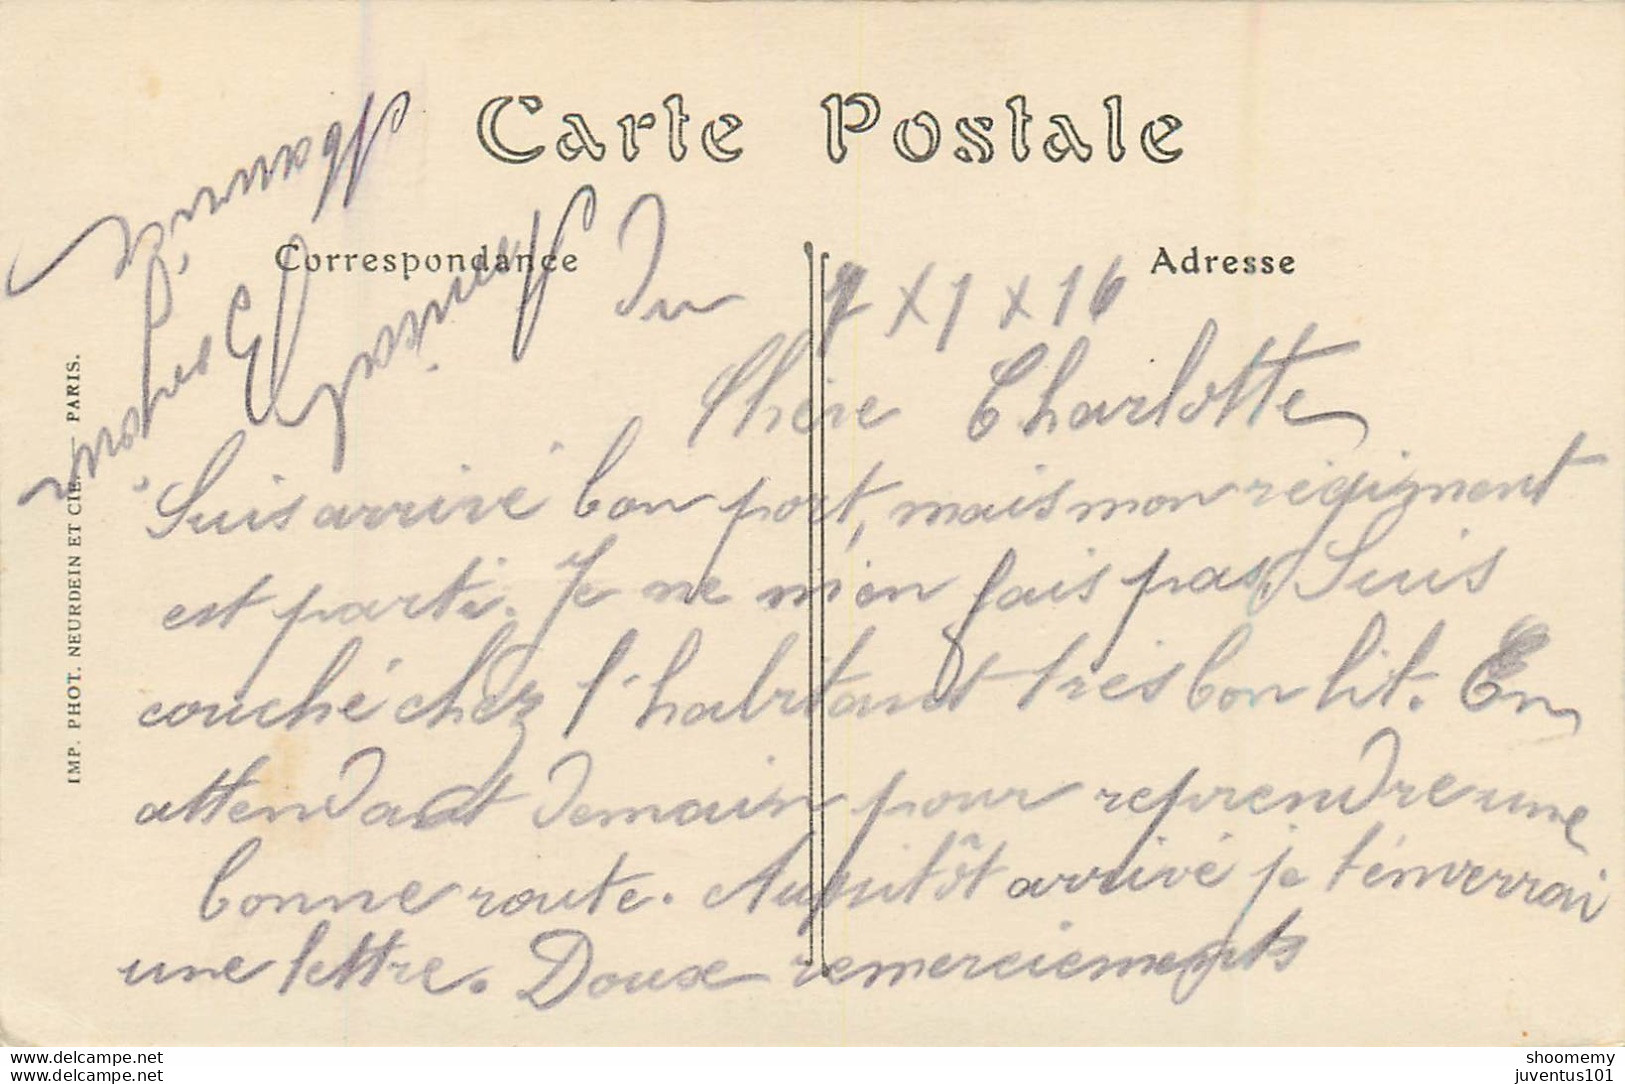 Carte Postale
Correspondance
Adresse
Du 7 x 1 x 16
Chère Charlotte
Suis arrivé bon port, mais mon régiment
est parti. Je ne m'en fais pas. Suis
couché chez l'habitant très bon lit. En
attendant demain pour reprendre une
bonne route. Aussitôt arrivé je t'enverrai
une lettre. Doux remerciements
IMP. PHOT. NEURDEIN ET CIE. PARIS.
more on juventus101's website
shoomemy
juventus101